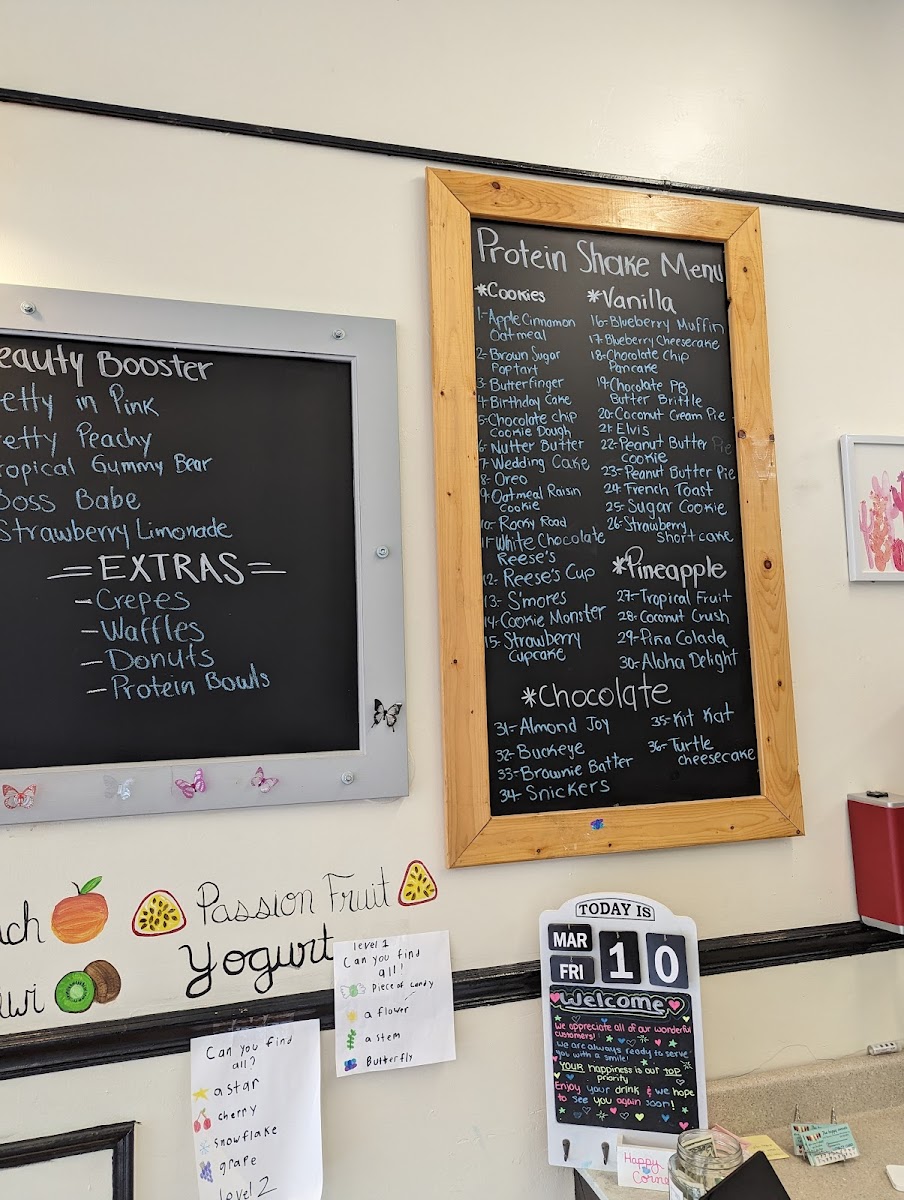 eauty Booster
etty in Pink
retty Peachy
ropical Gummy Bear
Boss Babe
Strawberry Limonade
= EXTRAS =
- Crepes
- Waffles
- Donuts
- Protein Bowls
Protein Shake Menu
*Cookies
1- Apple Cinnamon
Oatmeal
2- Brown Sugar
Poptart
3- Butterfinger
4- Birthday Cake
5- Chocolate chip
Cookie Dough
6- Nutter Butter
7- Wedding Cake
8- Oreo
9- Oatmeal Raisin
Cookie
10- Rocky Road
11- White Chocolate
Reese's
12- Reese's Cup
13- S'mores
14- Cookie Monster
15- Strawberry
Cupcake
*Vanilla
16- Blueberry Muffin
17 Blueberry Cheesecake
18- Chocolate Chip
Pancake
19- Chocolate PB
Butter Brittle
20- Coconut Cream Pie
21- Elvis
22- Peanut Butter Pie
Cookie
23- Peanut Butter Pie
24- French Toast
25- Sugar Cookie
26- Strawberry
Shortcake
*Pineapple
27- Tropical Fruit
28- Coconut Crush
29- Pina Colada
30- Aloha Delight
*Chocolate
31- Almond Joy
32- Buckeye
33- Brownie Batter
34- Snickers
35- Kit Kat
36- Turtle
cheesecake
ach
Passion Fruit
iwi
Yogurt
level 1
Can you find
all!
Piece of candy
a flower
a stem
Butterfly
Can you find
all?
a star
cherry
snowflake
grape
Level 2
TODAY IS
MAR
FRI
10
Welcome
We appreciate all of our wonderful
customers!
We are always ready to serve
you with a smile!
YOUR happiness is our TOP
priority
Enjoy your drink & we hope
to see you again soon!
Happy
Corne